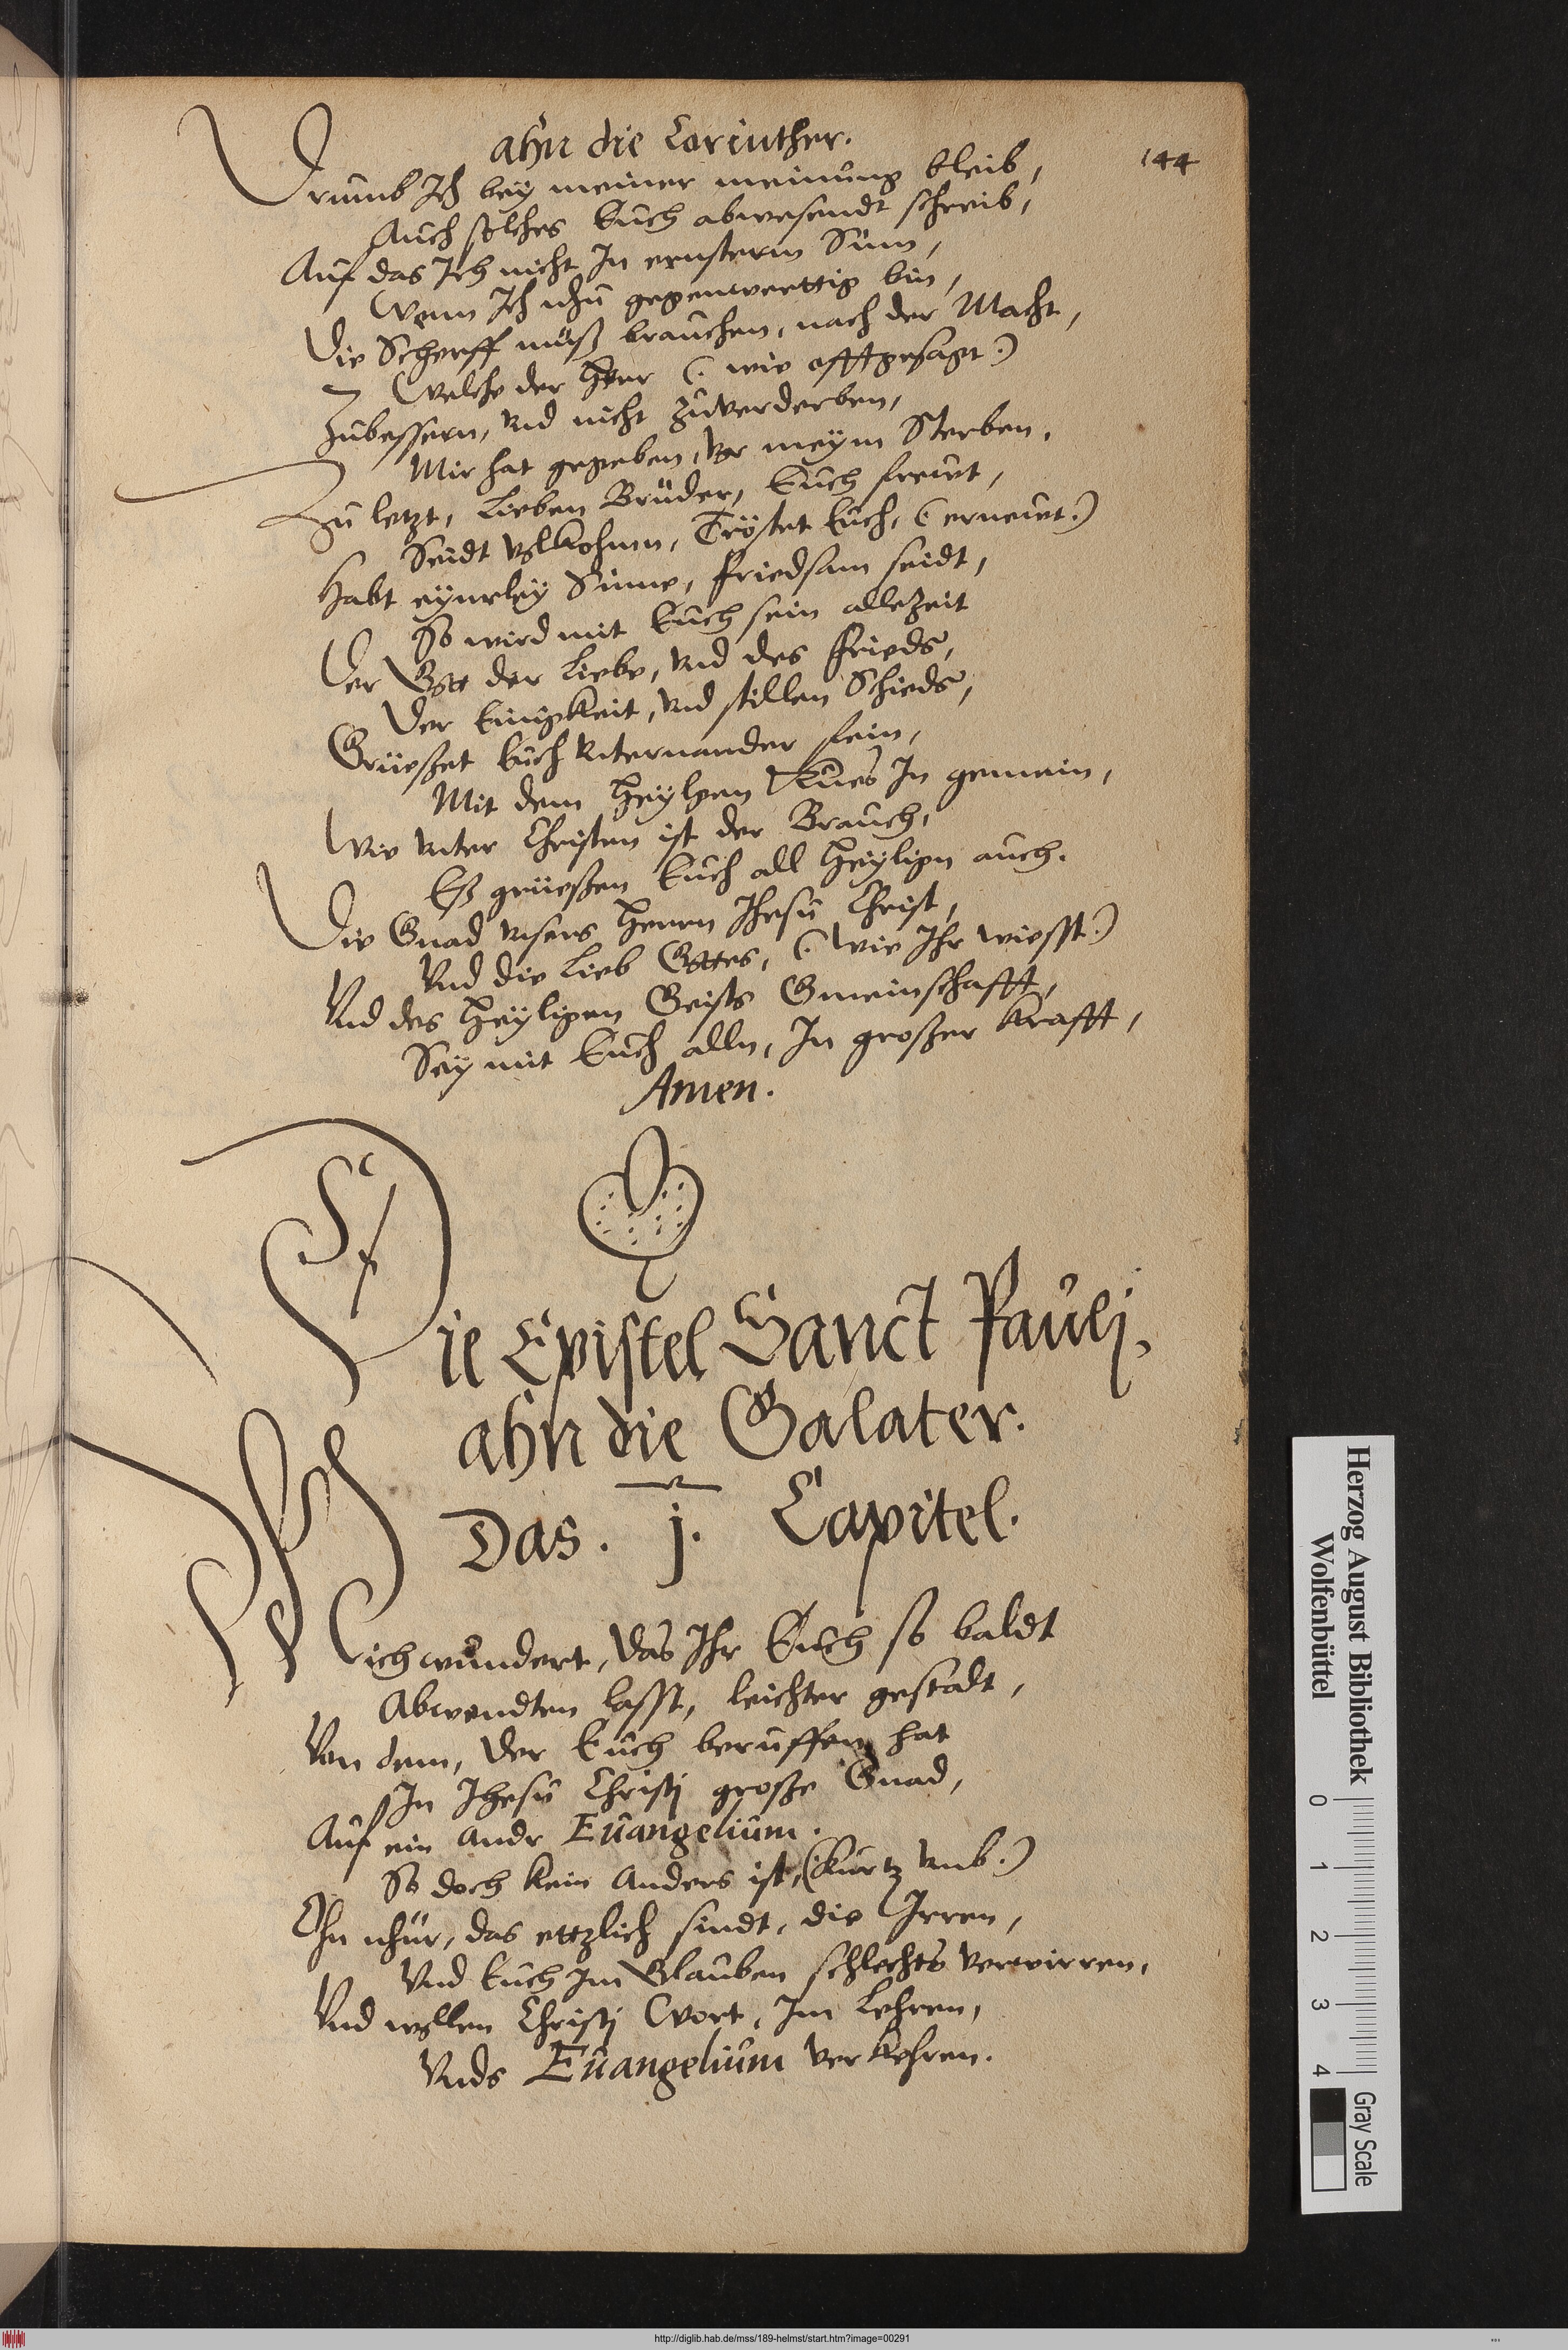 ahn die Corinther.
144
Drumb Ich bey meiner meinung bleib,
Auch solches Euch abwesendt schreib,
Auf das Ich nicht In ernsterm Sinn,
Wenn Ich nhu gegenwerttig bin,
Die Scherff muß brauchen, nach der Macht,
Welche der Herr (: wie offtgesagt:)
Zubessern, vnd nicht zuverderben,
Mir hat gegeben, vor meym Sterben.
Zu letzt, Lieben Brüder, Euch freuet,
Seidt vollkohmn, Tröstet Euch, (: erneuet:)
Habt eynerley Sinne, friedsam seidt,
So wird mit Euch sein allezeit
Der Gott der Liebe, vnd des frieds,
Der Einigkeit, vnd stillen Schieds,
Grüeßet Euch vnternander fein,
Mit dem heylgen Kues In gemein,
Wie vnter Christen ist der Brauch,
Eß grüeßen Euch all Heyligen auch.
Die Gnad vnsers Herrn Jhesu Christ,
Vnd die Lieb Gottes, (: wie Ihr wiesst:)
Vnd des Heyligen Geists Gmeinschafft,
Sey mit Euch alln, In großer Krafft,
Amen.
Die Epistel Sanct Paulj,
ahn die Galater.
Das . j. Capitel.
Mich wundert, das Ihr Euch so baldt
Abwendten lasst, leichter gestalt,
Von dem, der Euch beruffen hat
In Jhesu Christj große Gnad,
Auf ein andr Euangelium.
So doch kein anders ist, (: kurtz vmb:)
Ohn nhur, das ettzlich sindt, die Irren,
Vnd Euch Im Glauben schlechts verwirren,
Vnd wollen Christj Wort, Im Lehren,
Vnds Euangelium verkehren.
Herzog August Bibliothek
Wolfenbüttel
0 1 2 3 4
Gray Scale
http://diglib.hab.de/mss/189-helmst/start.htm?image=00291